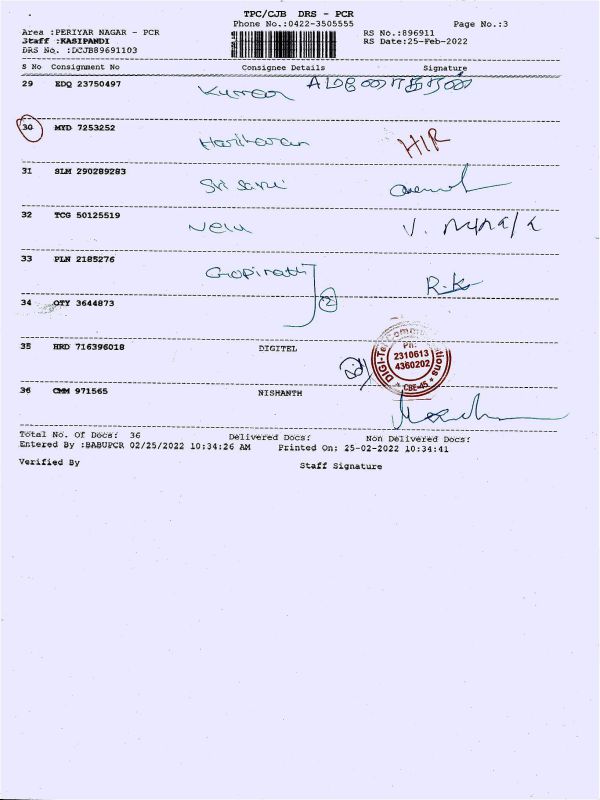 TPC/CJB DRS - PCR
Phone No.:0422-3505555
Page No.:3
Area :PERIYAR NAGAR - PCR
RS No.:896911
Staff :KASIPANDI
RS Date:25-Feb-2022
DRS No. :DCJB89691103
S No Consignment No Consignee Details Signature
29 EDQ 23750497 Kumar
30 MYD 7253252 Hariharan HIR
31 SLM 290289283 Sri Sarni
32 TCG 50125519 Nelu V.
33 PLN 2185276 Gopinath R.K
34 OTY 3644873 2
35 HRD 716396018 DIGITEL
PH:
2310613
4360202
CBE-45
36 CMM 971565 NISHANTH
Total No. Of Docs: 36 Delivered Docs: Non Delivered Docs:
Entered By :BABUPCR 02/25/2022 10:34:26 AM Printed On: 25-02-2022 10:34:41
Verified By Staff Signature